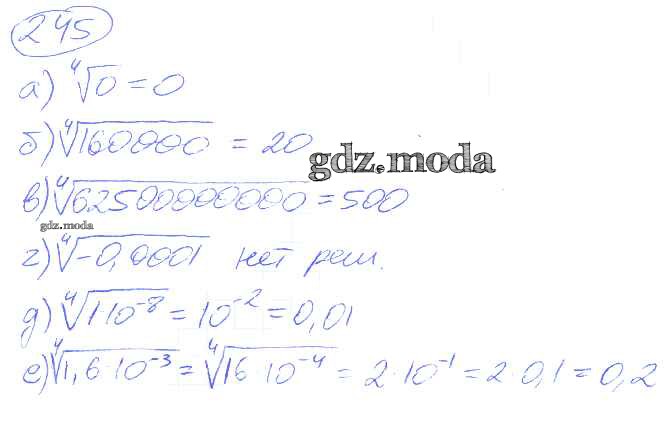 245
а) ∜0 = 0
б) ∜160000 = 20
gdz.moda
в) ∜62500000000 = 500
gdz.moda
г) ∜-0,0001 нет реш.
д) ∜1·10⁻⁸ = 10⁻² = 0,01
е) ∜1,6·10⁻³ = ∜16·10⁻⁴ = 2·10⁻¹ = 2·0,1 = 0,2